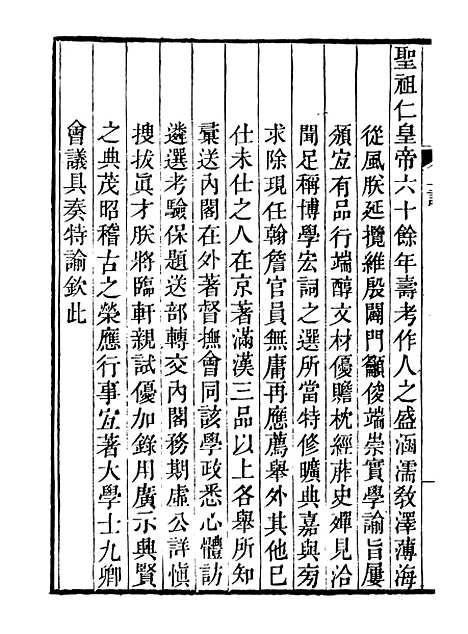 聖祖仁皇帝六十餘年壽考作人之盛涵濡敎澤薄海
從風朕延攬維殷闢門籲俊端崇實學諭旨屢
頒宐有品行端醇文材優贍枕經葄史殫見洽
聞足稱博學宏詞之選所當特修曠典嘉與旁
求除現任翰詹官員無庸再應薦舉外其他已
仕未仕之人在京著滿漢三品以上各舉所知
彚送內閣在外著督撫會同該學政悉心體訪
遴選考驗保題送部轉交內閣務期虛公詳愼
搜拔眞才朕將臨軒親試優加錄用廣示興賢
之典茂昭稽古之榮應行事宐著大學士九卿
會議具奏特諭欽此